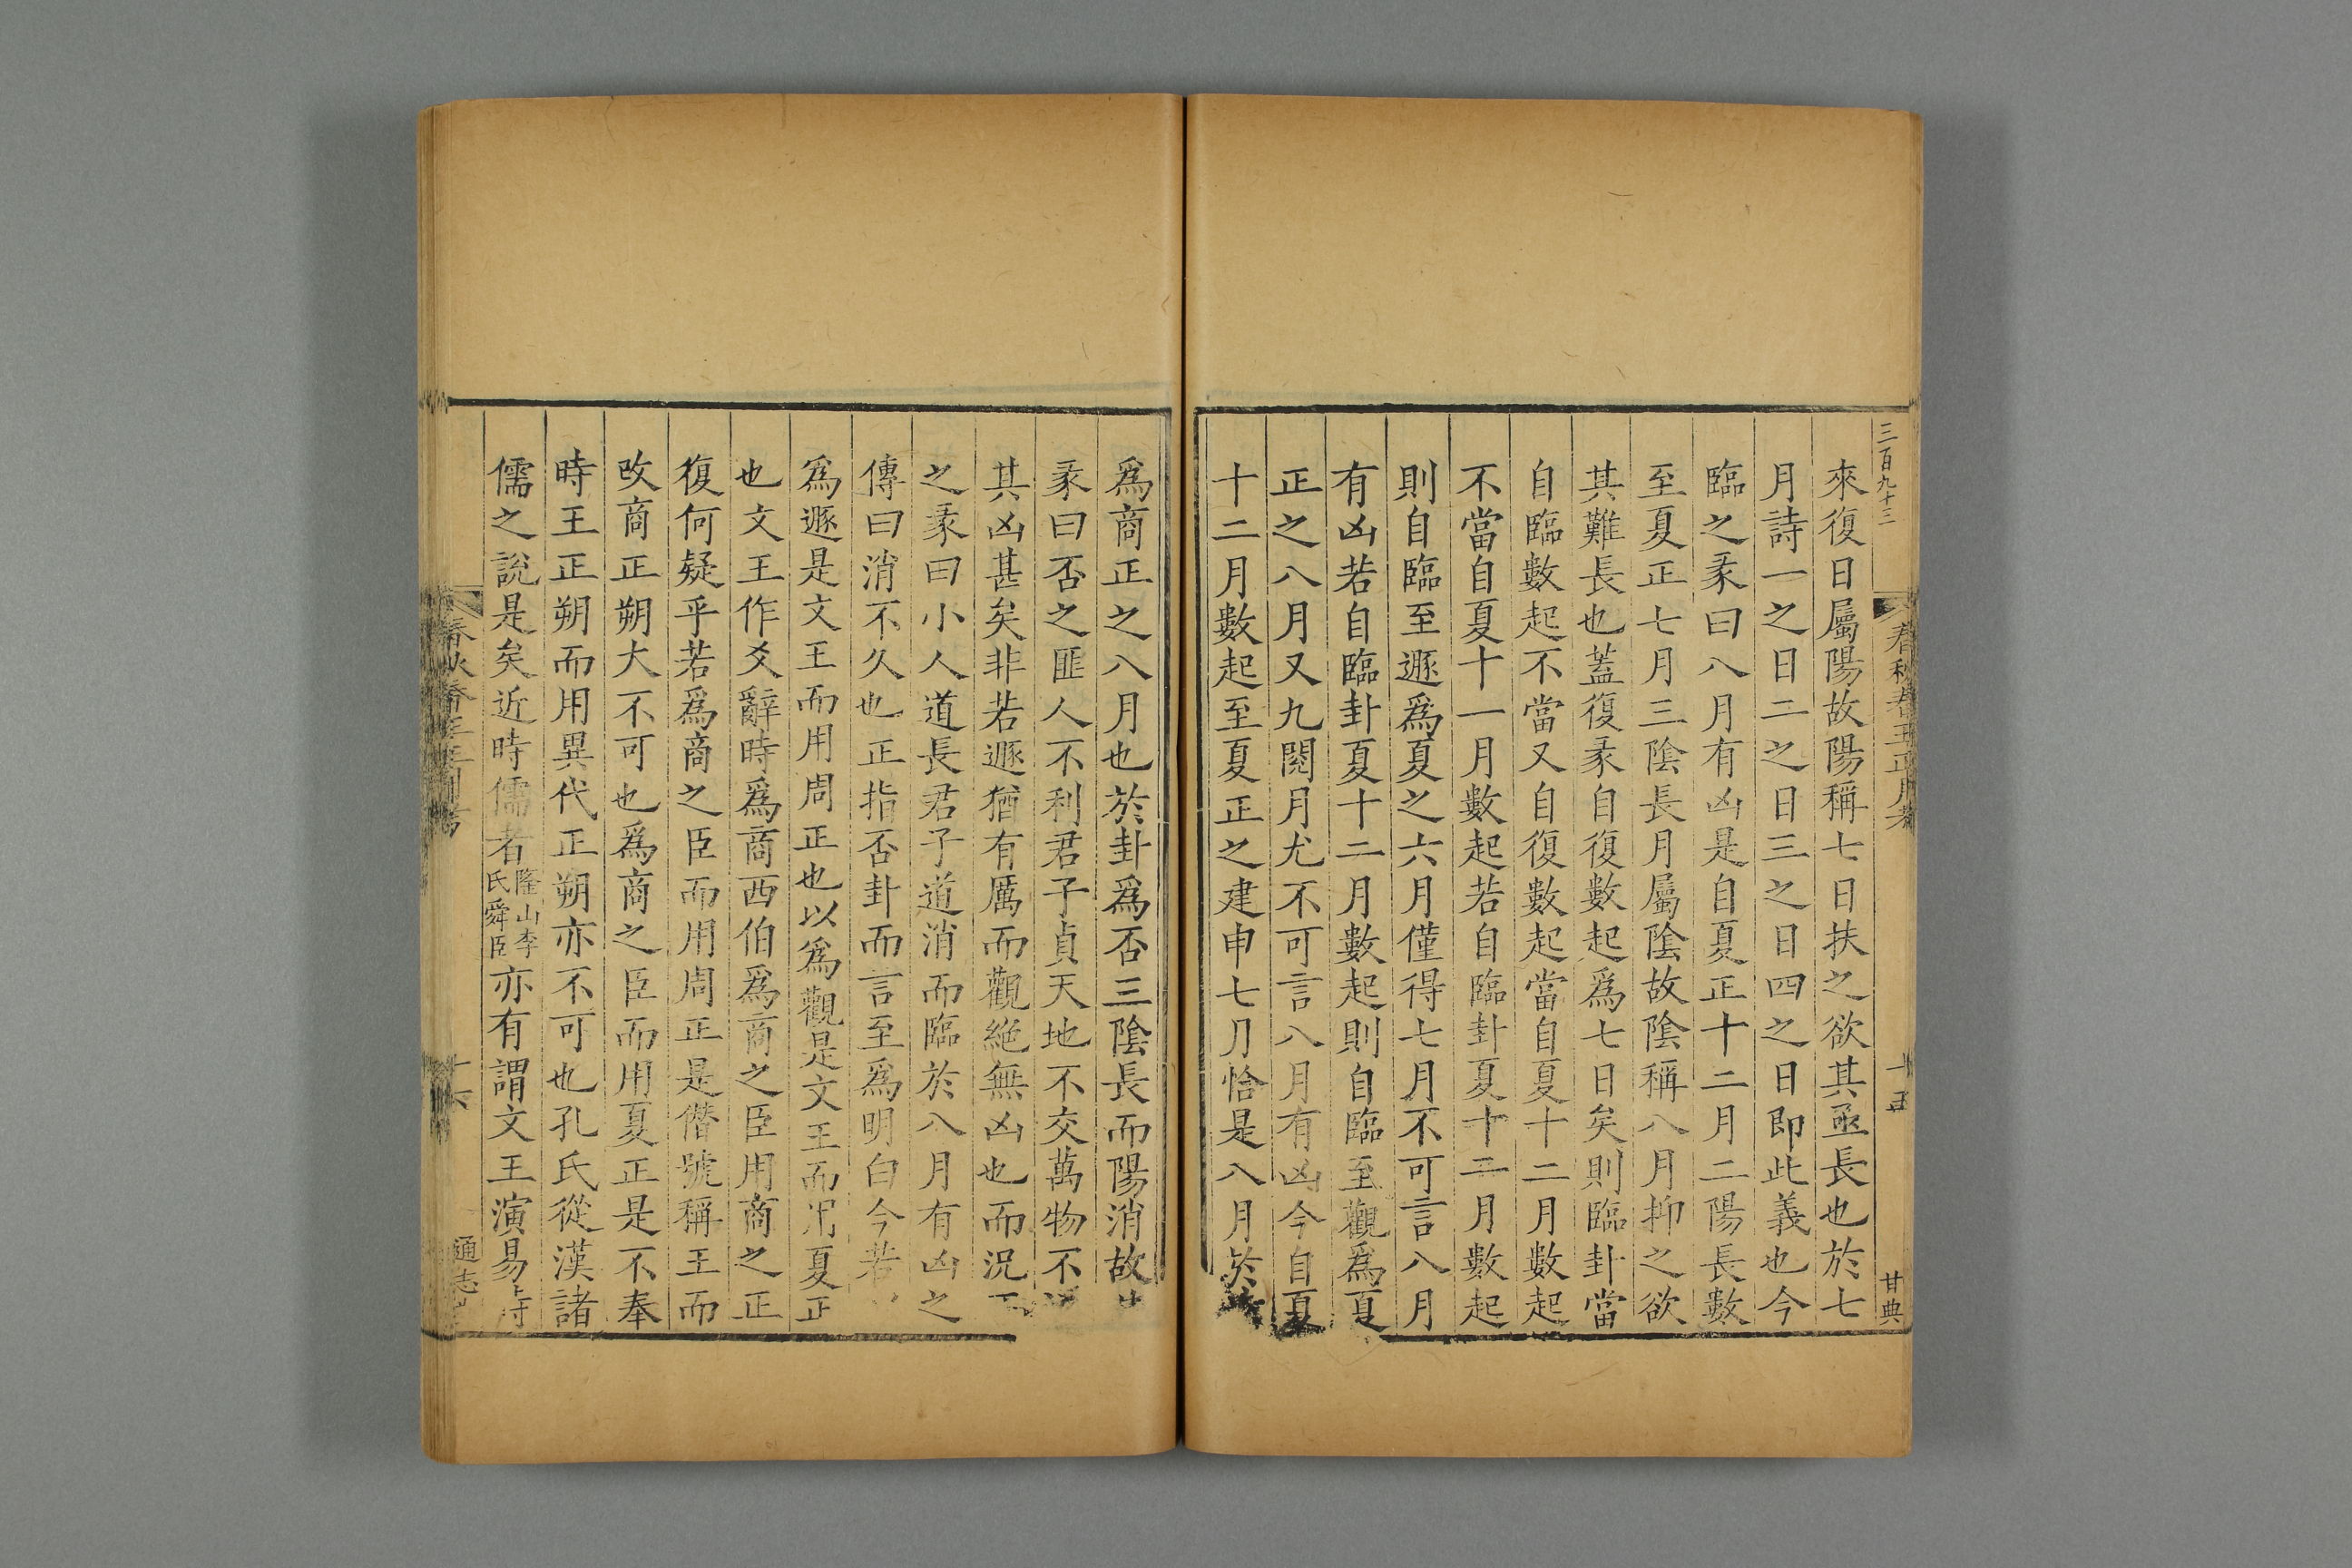 三百九十三
春秋春王正月考
十五
甘典
來復日屬陽故陽稱七日扶之欲其亟長也於七
月詩一之日二之日三之日四之日即此義也今
臨之彖曰八月有凶是自夏正十二月二陽長數
至夏正七月三陰長月屬陰故陰稱八月抑之欲
其難長也蓋復彖自復數起爲七日矣則臨卦當
自臨數起不當又自復數起當自夏十二月數起
不當自夏十一月數起若自臨卦夏十二月數起
則自臨至遯爲夏之六月僅得七月不可言八月
有凶若自臨卦夏十二月數起則自臨至觀爲夏
正之八月又九閱月尤不可言八月有凶今自夏
十二月數起至夏正之建申七月恰是八月於
爲商正之八月也於卦爲否三陰長而陽消故
彖曰否之匪人不利君子貞天地不交萬物不
其凶甚矣非若遯猶有厲而觀絕無凶也而況
之彖曰小人道長君子道消而臨於八月有凶之
傳曰消不久也正指否卦而言至爲明白今若
爲遯是文王而用周正也以爲觀是文王而用夏正
也文王作爻辭時爲商西伯爲商之臣用商之正
復何疑乎若爲商之臣而用周正是僭號稱王而
改商正朔大不可也爲商之臣而用夏正是不奉
時王正朔而用異代正朔亦不可也孔氏從漢諸
儒之說是矣近時儒者隆山李氏舜臣亦有謂文王演易時
春秋春王正月考
十六
通志